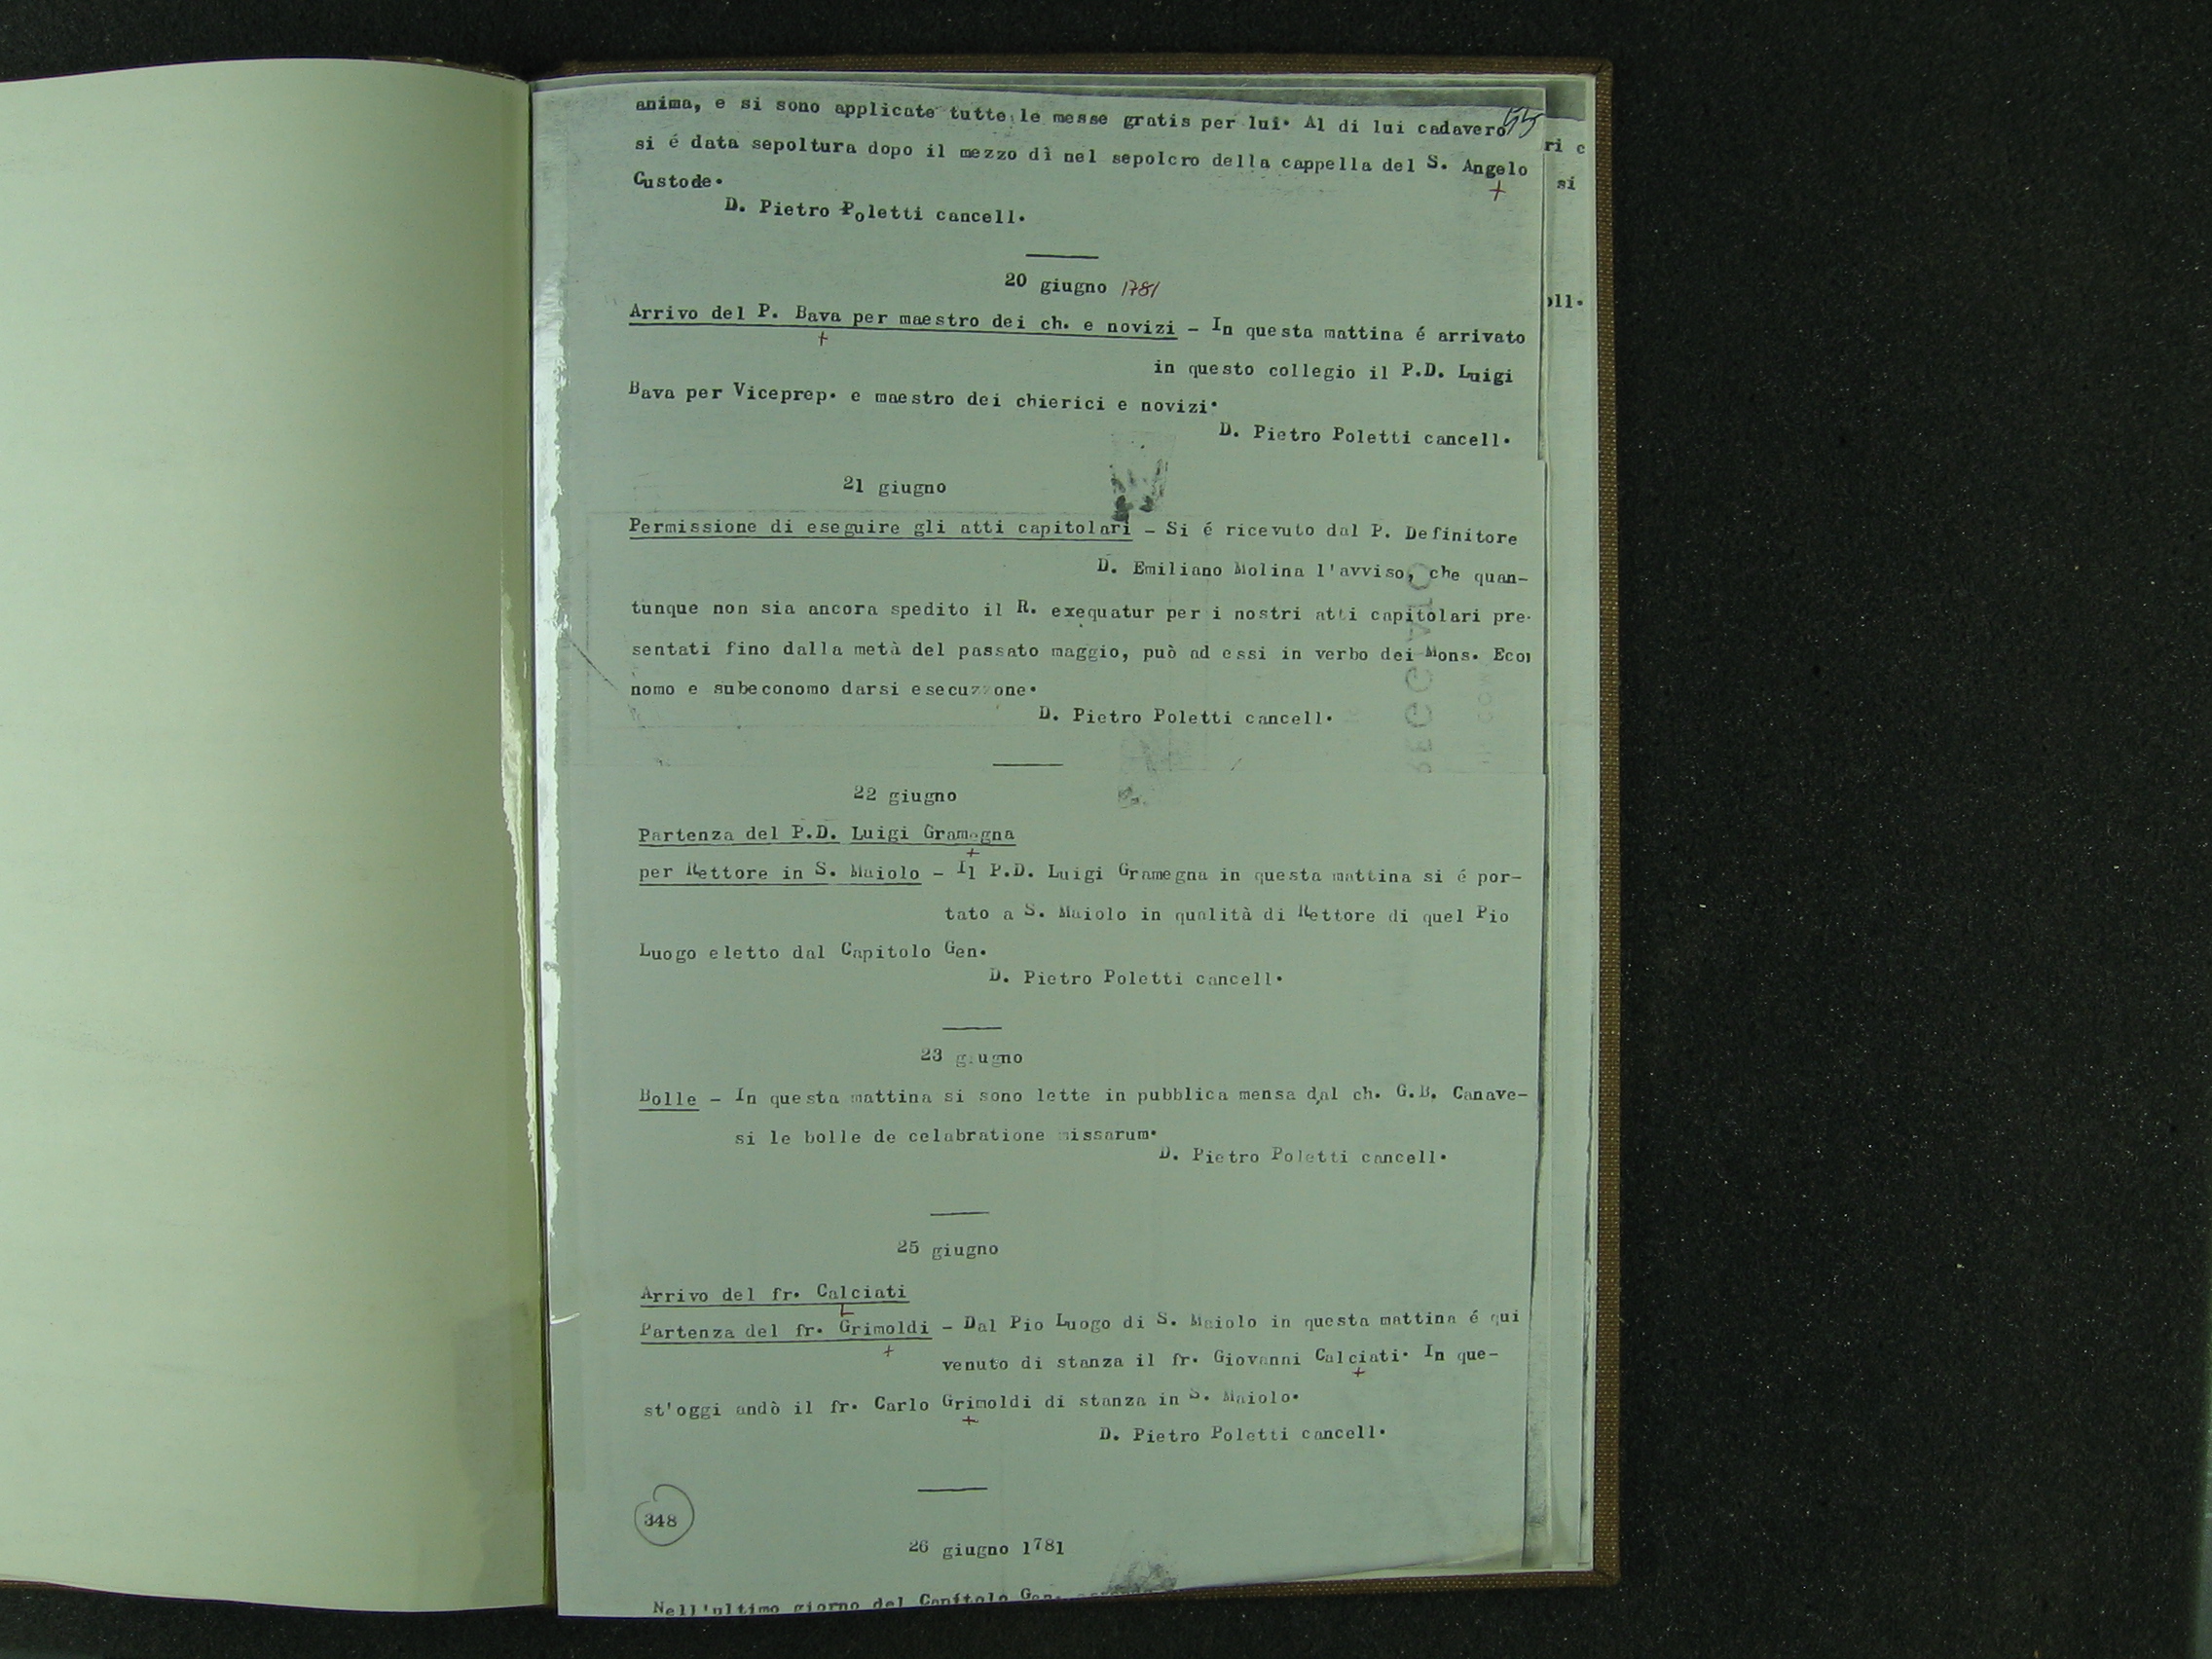 anima, e si sono applicate tutte le messe gratis per lui. Al di lui cadavero
si é data sepoltura dopo il mezzo dì nel sepolcro della cappella del S. Angelo
Custode.
D. Pietro Poletti cancell.
20 giugno 1781
Arrivo del P. Bava per maestro dei ch. e novizi - In questa mattina é arrivato
in questo collegio il P.D. Luigi
Bava per Viceprep. e maestro dei chierici e novizi.
D. Pietro Poletti cancell.
21 giugno
Permissione di eseguire gli atti capitolari - Si é ricevuto dal P. Definitore
D. Emiliano Molina l'avviso, che quan-
tunque non sia ancora spedito il R. exequatur per i nostri atti capitolari pre-
sentati fino dalla metà del passato maggio, può ad essi in verbo dei Mons. Eco
nomo e subeconomo darsi esecuzzone.
D. Pietro Poletti cancell.
22 giugno
Partenza del P.D. Luigi Gramegna
per Rettore in S. Maiolo - Il P.D. Luigi Gramegna in questa mattina si é por-
tato a S. Maiolo in qualità di Rettore di quel Pio
Luogo eletto dal Capitolo Gen.
D. Pietro Poletti cancell.
23 giugno
Bolle - In questa mattina si sono lette in pubblica mensa dal ch. G.B. Canave-
si le bolle de celabratione missarum.
D. Pietro Poletti cancell.
25 giugno
Arrivo del fr. Calciati
Partenza del fr. Grimoldi - Dal Pio Luogo di S. Maiolo in questa mattina é qui
venuto di stanza il fr. Giovanni Calciati. In que-
st'oggi andò il fr. Carlo Grimoldi di stanza in S. Maiolo.
D. Pietro Poletti cancell.
348
26 giugno 1781
Nell'ultimo giorno del Capitolo Gen.
ri c
si
oll.